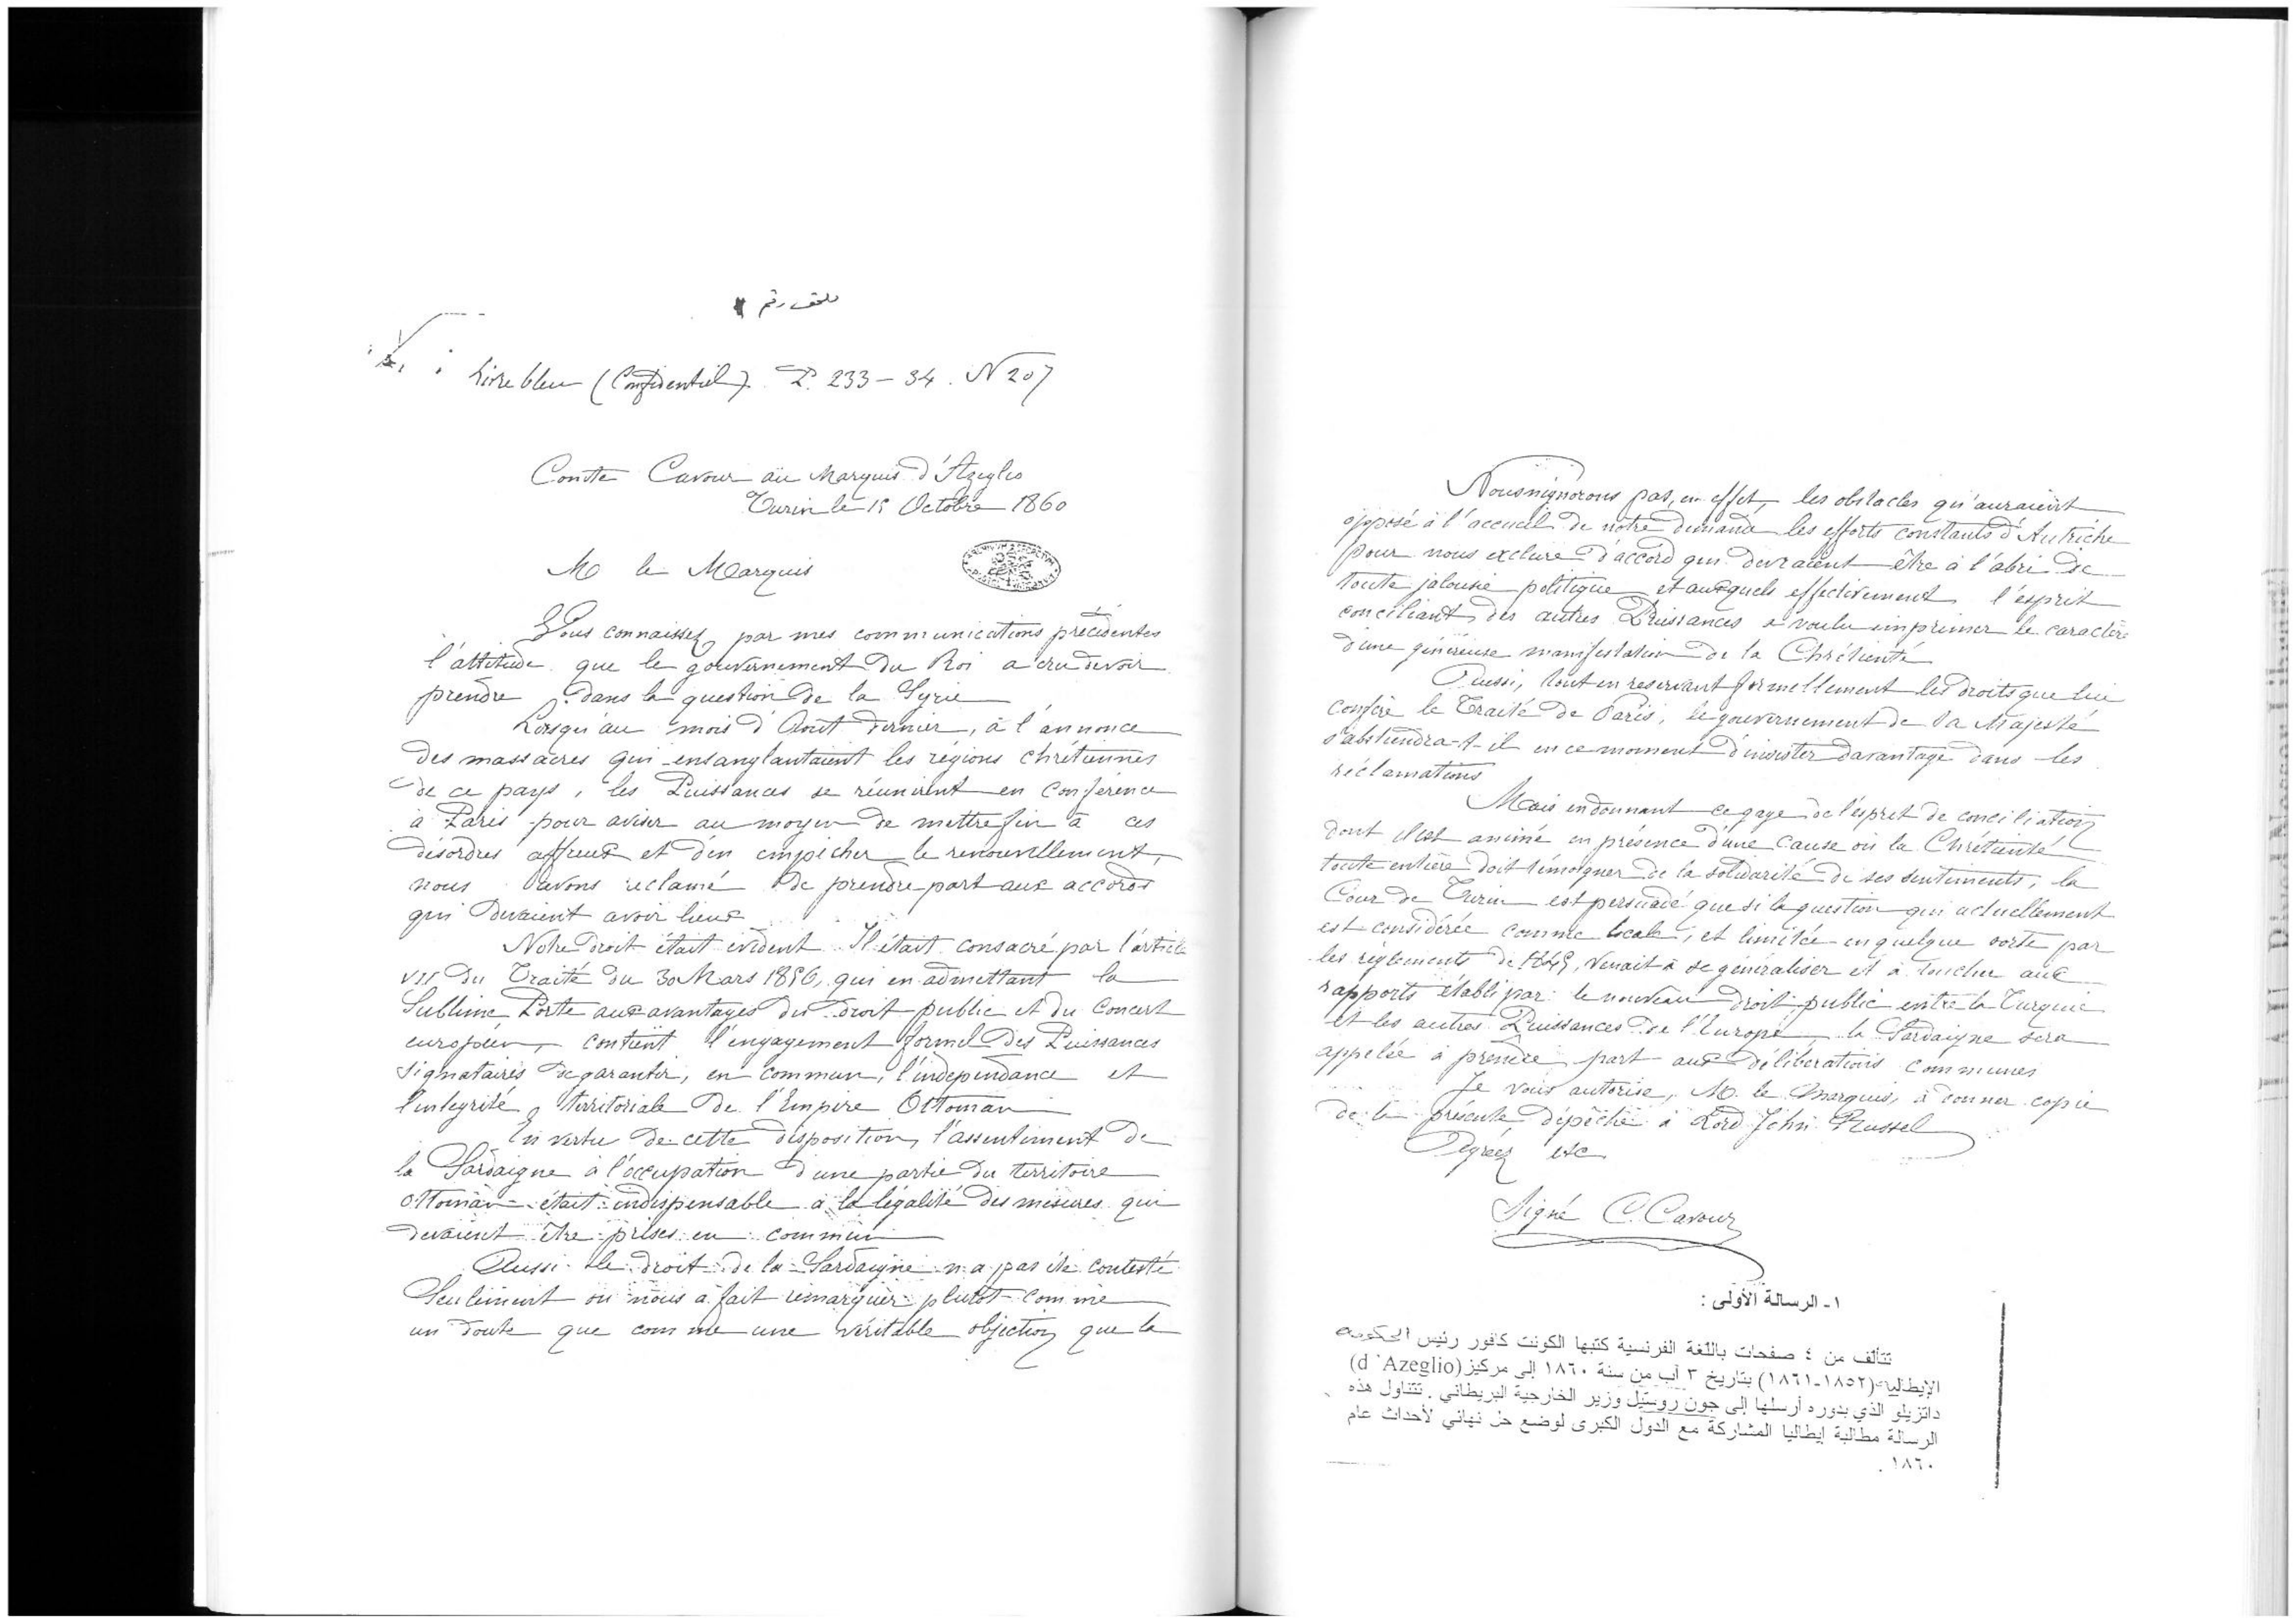 ملحق رقم
Livre bleu (Confidentiel). P. 233-34. N 207
Comte Cavour au Marquis d'Azeglio
Turin le 15 Octobre 1860
M le Marquis
Vous connaissez par mes communications précédentes
l'attitude que le gouvernement du Roi a cru devoir
prendre dans la question de la Syrie
Lorsqu'au mois d'Août dernier, à l'annonce
des massacres qui ensanglantaient les régions chrétiennes
de ce pays, les Puissances se réunirent en Conférence
à Paris pour aviser au moyen de mettre fin à ces
désordres affreux et d'en empêcher le renouvellement,
nous avons réclamé de prendre part aux accords
qui devaient avoir lieux
Notre droit était évident Il était consacré par l'article
VII du Traité du 30 Mars 1856, qui en admettant la
Sublime Porte aux avantages du droit public et du Concert
européen, contient l'engagement formel des Puissances
signataires de garantir, en commun, l'indépendance et
l'intégrité territoriale de l'Empire Ottoman
En vertu de cette disposition, l'assentiment de
la Sardaigne à l'occupation d'une partie du territoire
ottoman était indispensable à la légalité des mesures qui
devaient être prises en commun
Aussi le droit de la Sardaigne n'a pas été contesté
Seulement on nous a fait remarquer plutôt comme
un doute que comme une véritable objection que la
Nous n'ignorons pas, en effet, les obstacles qu'auraient
opposé à l'accueil de notre demande les efforts constants d'Autriche
pour nous exclure d'accord qui devraient être à l'abri de
toute jalousie politique et auxquels effectivement l'esprit
conciliant des autres Puissances a voulu imprimer le caractère
d'une généreuse manifestation de la Chrétienté
Aussi, tout en réservant formellement les droits que lui
confère le Traité de Paris, le gouvernement de Sa Majesté
s'abstiendra-t-il en ce moment d'insister davantage dans les
réclamations
Mais en donnant ce gage de l'esprit de conciliation
dont il est animé en présence d'une cause où la Chrétienté
toute entière doit témoigner de la solidarité de ses sentiments, la
Cour de Turin est persuadé que si la question qui actuellement
est considérée comme locale, et limitée en quelque sorte par
les règlements de 1845, venait à se généraliser et à toucher aux
rapports établi par le nouveau droit public entre la Turquie
et les autres Puissances de l'Europe, la Sardaigne sera
appelée à prendre part aux délibérations communes
Je vous autorise, M. le Marquis, à donner copie
de la présente dépêche à Lord John Russel
Agréez etc
Signé C. Cavour
١- الرسالة الأولى :
تتألف من ٤ صفحات باللغة الفرنسية كتبها الكونت كافور رئيس الحكومة
الإيطالية (١٨٥٢-١٨٦١) بتاريخ ٣ آب من سنة ١٨٦٠ إلى مركيز (d'Azeglio)
داتزيلو الذي بدوره أرسلها إلى جون روستيل وزير الخارجية البريطاني . تتناول هذه
الرسالة مطالبة إيطاليا المشاركة مع الدول الكبرى لوضع حل نهائي لأحداث عام
١٨٦٠ .